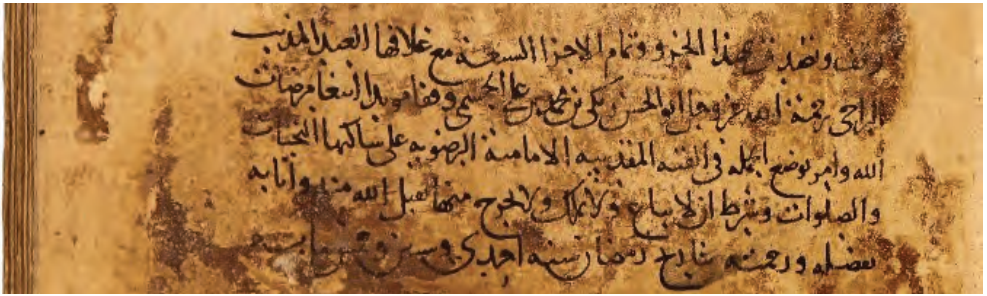 وقف وتصدق بهذا الجزو وتمام الاجزا السبعة مع غلافها العبد المذنب
الراجى رحمة الله عز وجل ابو الحسن بن محمد بن على وقفا موبدا ابتغا مرضات
الله وامر بوضع الجمله فى القبه المقدسه الامامية الرضويه على ساكنها التحيات
والصلوات وشرط ان لا يباع ولا تملك ولا يخرج منها تقبل الله منه واثابه
بفضله ورحمته بتاريخ رمضان سنه احدى وستين